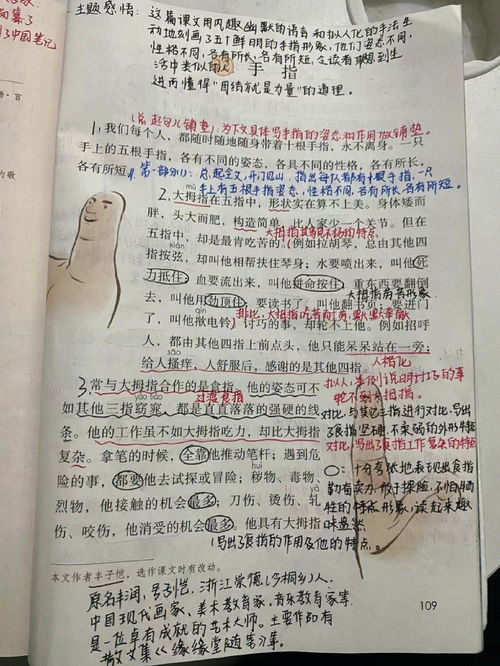 主题感悟：这篇课文用风趣幽默的语言和拟人化的手法生
动地刻画了五个鲜明的手指形象，他们姿态不同，
性格不同，各有所长，各有所短，令读者联想到生
活中类似的人
进而懂得"团结就是力量"的道理。
手指
(总起句儿铺垫)：为下文具体写手指的姿态和作用做铺垫。
1、我们每个人，都随时随地随身带着十根手指，永不离身。一只
手上的五根手指，各有不同的姿态，各具不同的性格，各有所长，
各有所短。
第一部分(1)：总起全文，开门见山，指出每人都有十根手指，一只
手上有五根手指姿态，性格不同，各有所长，各有所短。
mǔ
2.大拇指在五指中，形状实在算不上美。身体矮而
胖，头大而肥，构造简单，比人家少一个关节。但在
大拇指其貌不扬的特点
五指中，却是最肯吃苦的。例如拉胡琴，总由其他四
xián
指按弦，却叫他相帮扶住琴身；水要喷出来，叫他死
力抵住；血要流出来，叫他拼命按住；重东西要翻倒
去，叫他用劲顶住；要读书了，叫他翻书页；要进门
了，叫他揿电铃。
qìn
排比，大拇指吃苦耐劳，默默奉献
讨巧的事，却轮不上他。例如招呼
人，都由其他四指上前点头，他只能呆呆站在一旁；
sāo
给人搔痒，人舒服后，感谢的是其他四指。
拟人化
拟人，举例
3.常与大拇指合作的是食指。他的姿态可不
过渡食指
yǎo tiǎo
如其他三指窈窕，都是直直落落的强硬的线
条。他的工作虽不如大拇指吃力，却比大拇指
复杂。拿笔的时候，全靠他推动笔杆；遇到危
huì
险的事，都要他去试探或冒险；秽物、毒物、
烈物，他接触的机会最多；刀伤、烫伤、轧
yà
伤、咬伤，他消受的机会最多。他具有大拇指
对比，与其他三指进行对比，写出
了食指坚硬、不柔弱的外形特征
对比，写出了食指工作复杂的特点
(写出了食指的作用及他的特点。
本文作者丰子恺，选作课文时有改动。
原名丰润，号子恺，浙江崇德(今桐乡)人。
中国现代画家、美术教育家，音乐教育家等
是一位卓有成就的艺术大师。主要作品有
散文集《缘缘堂随笔》等。
109